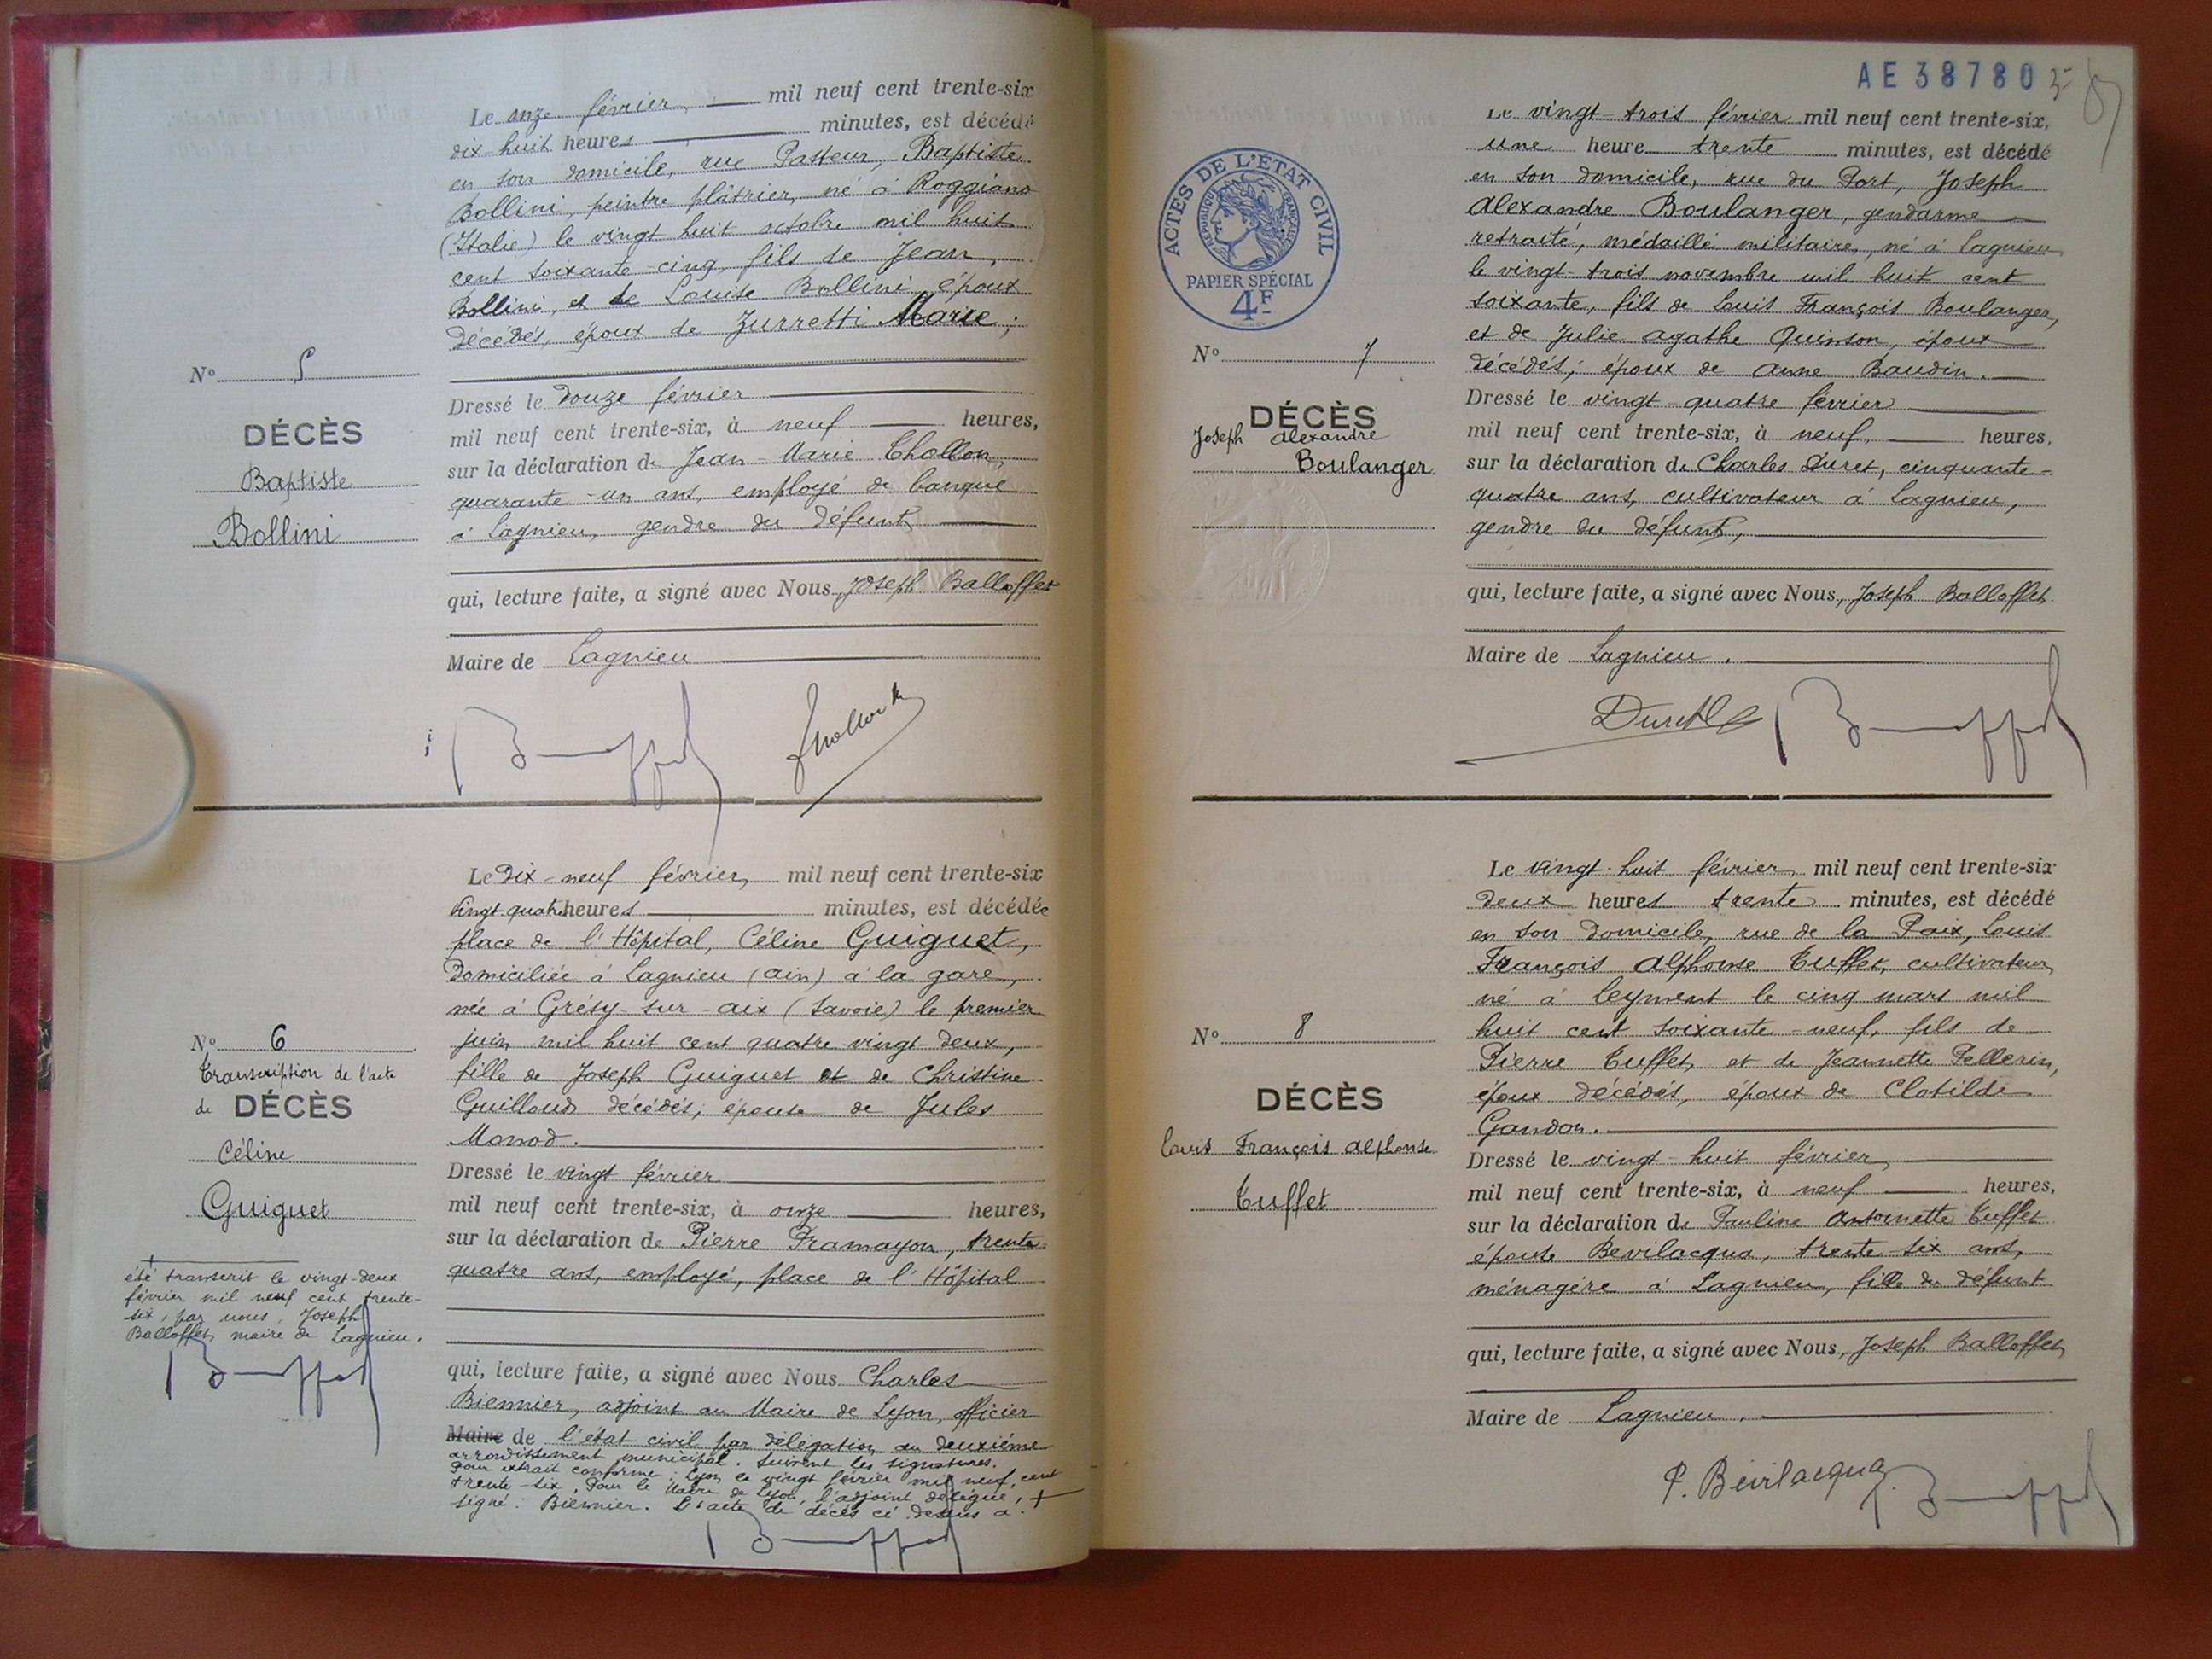 Le onze février, mil neuf cent trente-six
dix-huit heures minutes, est décédé
en son domicile, rue Pasteur, Baptiste
Bollini, peintre plâtrier, né à Roggiano
(Italie) le vingt huit octobre mil huit
cent soixante-cinq, fils de Jean
Bollini, et de Louise Bollini, époux
décédés, époux de Zurretti Marie;
N° 5
DÉCÈS
Baptiste
Bollini
Dressé le douze février
mil neuf cent trente-six, à neuf heures,
sur la déclaration de Jean-Marie Chollon,
quarante-un ans, employé de banque
à Lagnieu, gendre du défunt,
qui, lecture faite, a signé avec Nous Joseph Balloffet
Maire de Lagnieu
Le dix-neuf février, mil neuf cent trente-six
vingt-quatre heures minutes, est décédée
place de l'Hôpital, Céline Guiguet,
domiciliée à Lagnieu (Ain) à la gare,
née à Grésy-sur-Aix (Savoie) le premier
juin mil huit cent quatre-vingt-deux,
fille de Joseph Guiguet et de Christine
Guilloud décédés; épouse de Jules
Monod.
N° 6
Transcription de l'acte
de DÉCÈS
Céline
Guiguet
Dressé le vingt février
mil neuf cent trente-six, à onze heures,
sur la déclaration de Pierre Framayon, trente
quatre ans, employé, place de l'Hôpital
qui, lecture faite, a signé avec Nous Charles
Biennier, adjoint au Maire de Lyon, officier
Maire de l'état civil par délégation du deuxième
arrondissement municipal. Suivent les signatures.
Pour extrait conforme: Lyon le vingt février mil neuf cent
trente-six. Pour le Maire de Lyon, l'adjoint délégué, +
signé: Biennier. L'acte de décès ci-dessus a
+
été transcrit le vingt-deux
février mil neuf cent trente-
six, par nous, Joseph
Balloffet, maire de Lagnieu.
AE 38780 5
Le vingt-trois février mil neuf cent trente-six,
une heure trente minutes, est décédé
en son domicile, rue du Port, Joseph
Alexandre Boulanger, gendarme
retraité, médaillé militaire, né à Lagnieu
le vingt-trois novembre mil huit cent
soixante, fils de Louis François Boulanger,
et de Julie Agathe Quinson, époux
décédés; époux de Anne Baudin.
ACTES DE L'ÉTAT CIVIL
RÉPUBLIQUE FRANÇAISE
PAPIER SPÉCIAL
4F
N° 7
DÉCÈS
Joseph Alexandre
Boulanger
Dressé le vingt-quatre février
mil neuf cent trente-six, à neuf heures,
sur la déclaration de Charles Duret, cinquante-
quatre ans, cultivateur à Lagnieu,
gendre du défunt,
qui, lecture faite, a signé avec Nous, Joseph Balloffet
Maire de Lagnieu.
Duret
Le vingt-huit février, mil neuf cent trente-six
deux heures trente minutes, est décédé
en son domicile, rue de la Paix, Louis
François Alphonse Tuffet, cultivateur,
né à Leyment le cinq mars mil
huit cent soixante-neuf, fils de
Pierre Tuffet, et de Jeannette Pellerin,
époux décédés, époux de Clotilde
Gandon.
N° 8
DÉCÈS
Louis François Alphonse
Tuffet
Dressé le vingt-huit février,
mil neuf cent trente-six, à neuf heures,
sur la déclaration de Pauline Antoinette Tuffet
épouse Bevilacqua, trente-six ans,
ménagère à Lagnieu, fille du défunt
qui, lecture faite, a signé avec Nous, Joseph Balloffet,
Maire de Lagnieu.
P. Bevilacqua